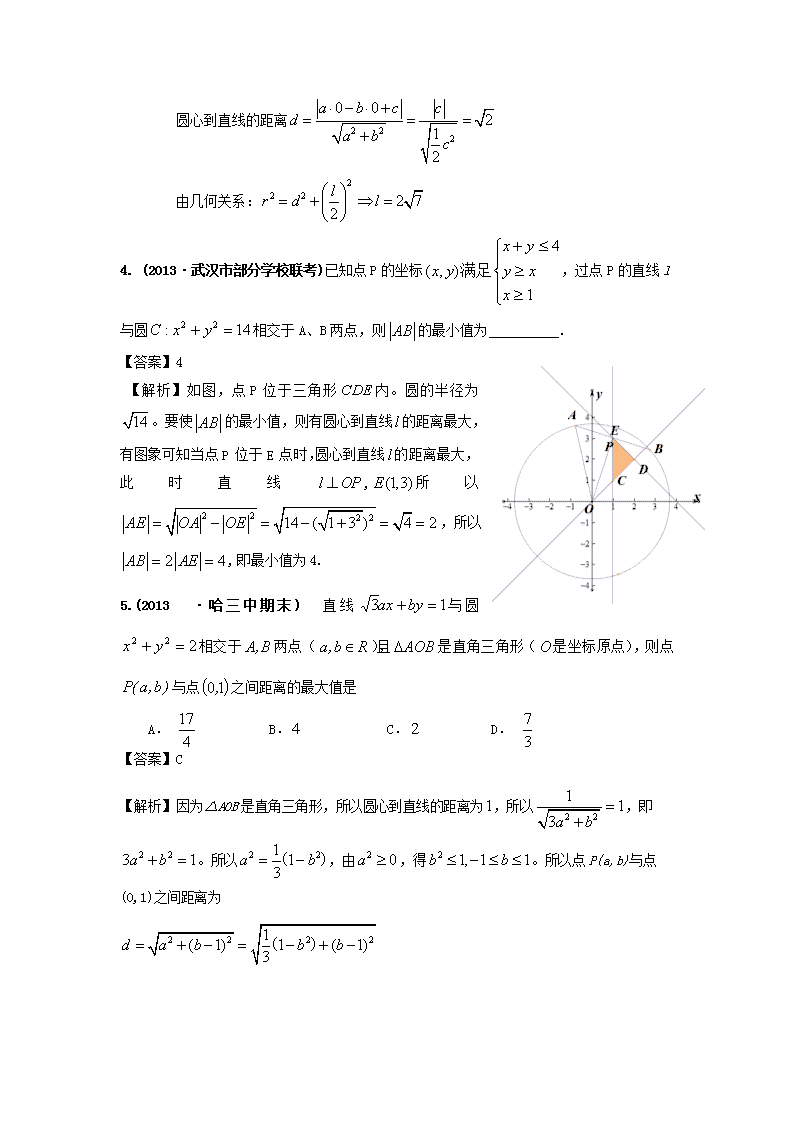 圆心到直线的距离 d = |a·0−b·0+c| / √(a²+b²) = |c| / √(1/2 c²) = √2
由几何关系: r² = d² + (l/2)² ⇒ l = 2√7
4. (2013·武汉市部分学校联考)已知点 P 的坐标 (x, y)满足 { x + y ≤ 4, y ≥ x, x ≥ 1 ，过点 P 的直线 l
与圆 C : x² + y² = 14 相交于 A、B 两点，则 |AB| 的最小值为 ________.
【答案】4
【解析】如图，点 P 位于三角形 CDE 内。圆的半径为
√14 。要使 |AB| 的最小值，则有圆心到直线 l 的距离最大，
有图象可知当点 P 位于 E 点时,圆心到直线 l 的距离最大，
此时直线 l ⊥ OP , E(1,3) 所以
|AE| = √(|OA|² − |OE|²) = √(14 − (√(1+3²))²) = √4 = 2 ，所以
|AB| = 2|AE| = 4 ,即最小值为 4.
y
4
3
2
1
−1
−2
−3
−4
−4 −3 −2 −1 1 2 3 4 x
A
E
P
B
D
C
O
5.(2013 ·哈三中期末) 直线 √3ax + by = 1 与圆
x² + y² = 2 相交于 A,B 两点（ a,b ∈ R )且 ΔAOB 是直角三角形（ O 是坐标原点），则点
P(a,b) 与点 (0,1) 之间距离的最大值是
A． 17/4 B．4 C．2 D． 7/3
【答案】C
【解析】因为△AOB 是直角三角形，所以圆心到直线的距离为 1，所以 1/√(3a²+b²) = 1，即
3a² + b² = 1。所以 a² = 1/3 (1 − b²)，由 a² ≥ 0 ，得 b² ≤ 1, −1 ≤ b ≤ 1。所以点 P(a, b)与点
(0,1)之间距离为
d = √(a² + (b−1)²) = √(1/3 (1 − b²) + (b−1)²)